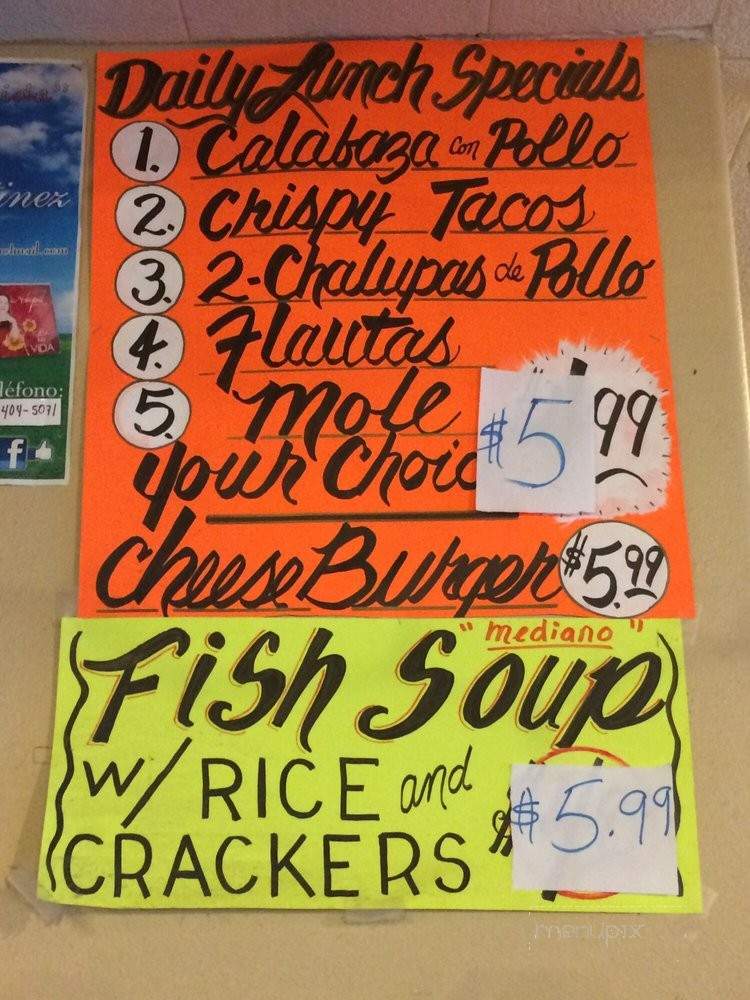 Daily Lunch Specials
1. Calabaza con Pollo
2. Crispy Tacos
3. 2-Chalupas de Pollo
4. Flautas
5. Mole
Your Choic $5 99
Cheese Burger $5.99
"mediano"
Fish Soup
w/ RICE and
CRACKERS $5.99
inez
VIDA
léfono:
404-5071
f
menupix